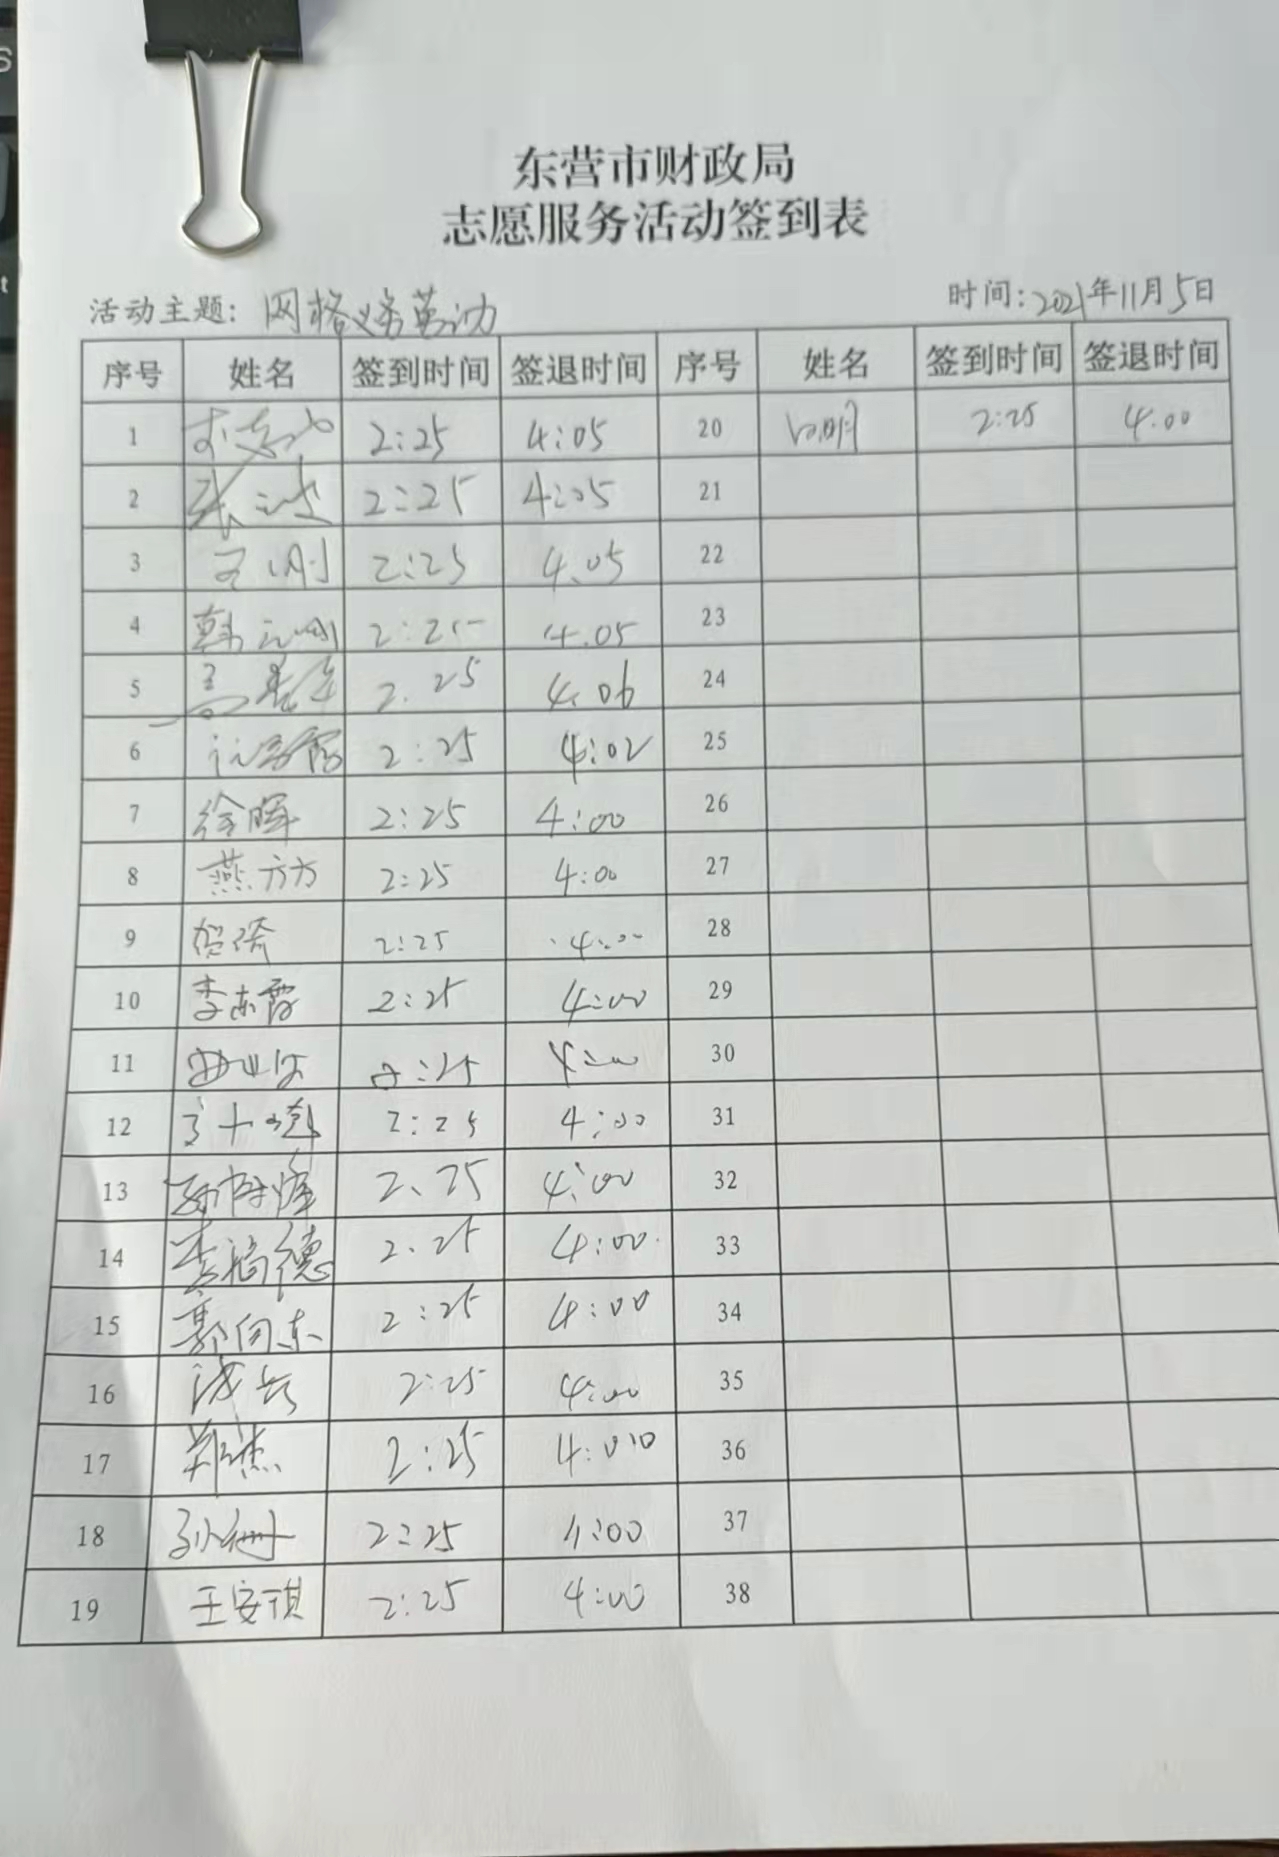 东营市财政局
志愿服务活动签到表
活动主题: 网格义务劳动 时间:2021年11月5日
序号 姓名 签到时间 签退时间 序号 姓名 签到时间 签退时间
1 2:25 4:05 20 2:25 4:00
2 2:25 4:05 21
3 王刚 2:25 4.05 22
4 韩 2:25 4.05 23
5 2.25 4.06 24
6 2:25 4:02 25
7 徐晖 2:25 4:00 26
8 燕方方 2:25 4:00 27
9 贺琦 2:25 4:00 28
10 李东霞 2:25 4:00 29
11 2:25 4:00 30
12 2:25 4:00 31
13 2、25 4:00 32
14 李福德 2.25 4:00 33
15 郭向东 2:25 4:00 34
16 2:25 4:00 35
17 郑杰 2:25 4:00 36
18 孙 2:25 4:00 37
19 王安琪 2:25 4:00 38